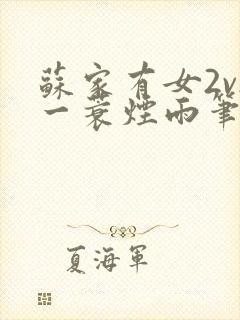 蘇家有女2v
一蓑煙雨筆
夏海軍